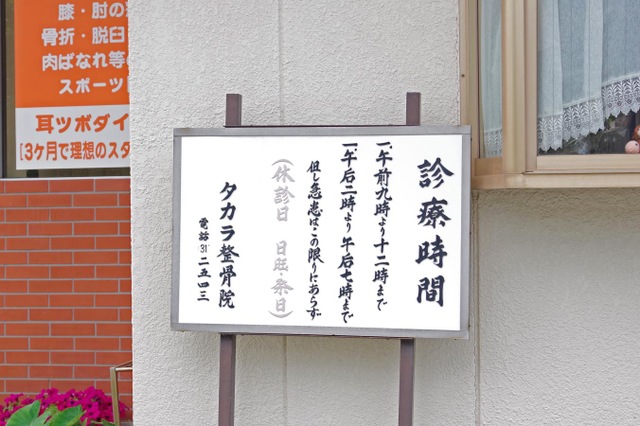 膝・肘の
骨折・脱臼
肉ばなれ等の
スポーツ
耳ツボダイ
3ヶ月で理想のスタ
診療時間
一、午前九時より十二時まで
一、午后二時より午后七時まで
但し急患はこの限りにあらず
(休診日 日旺・祭日)
タカラ整骨院
電話31-二五四三